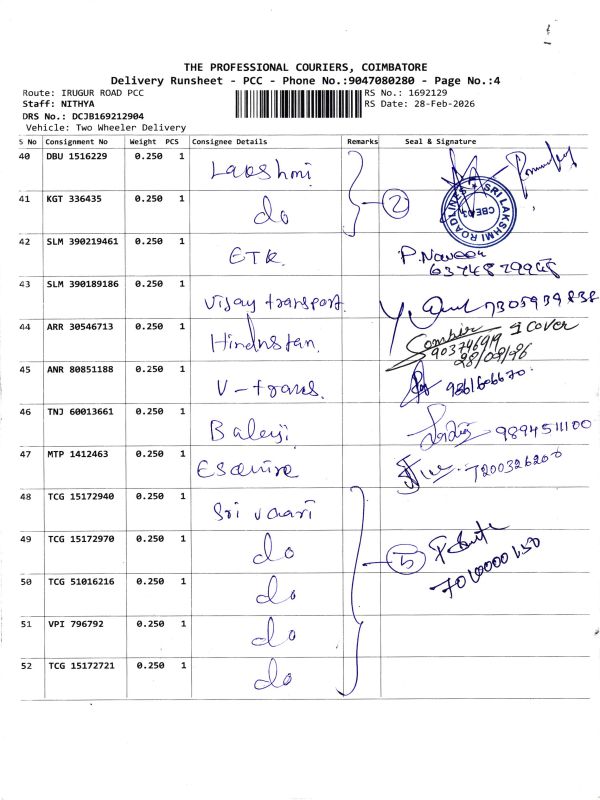 THE PROFESSIONAL COURIERS, COIMBATORE
Delivery Runsheet - PCC - Phone No.:9047080280 - Page No.:4
Route: IRUGUR ROAD PCC RS No.: 1692129
Staff: NITHYA RS Date: 28-Feb-2026
DRS No.: DCJB169212904
Vehicle: Two Wheeler Delivery
S No Consignment No Weight PCS Consignee Details Remarks Seal & Signature
40 DBU 1516229 0.250 1 Lakshmi
SRI LAKSHMI ROADLINES
41 KGT 336435 0.250 1 do 2
42 SLM 390219461 0.250 1 ETR. P. Naveen
43 SLM 390189186 0.250 1 Vijay transport. 7305939838
44 ARR 30546713 0.250 1 Hindustan. 1 Cover
28/02/26
45 ANR 80851188 0.250 1 V-trans.
46 TNJ 60013661 0.250 1 Balaji 9894511100
47 MTP 1412463 0.250 1 Esquire 7200326206
48 TCG 15172940 0.250 1 Sri vaari
49 TCG 15172970 0.250 1 do 5
50 TCG 51016216 0.250 1 do
51 VPI 796792 0.250 1 do
52 TCG 15172721 0.250 1 do